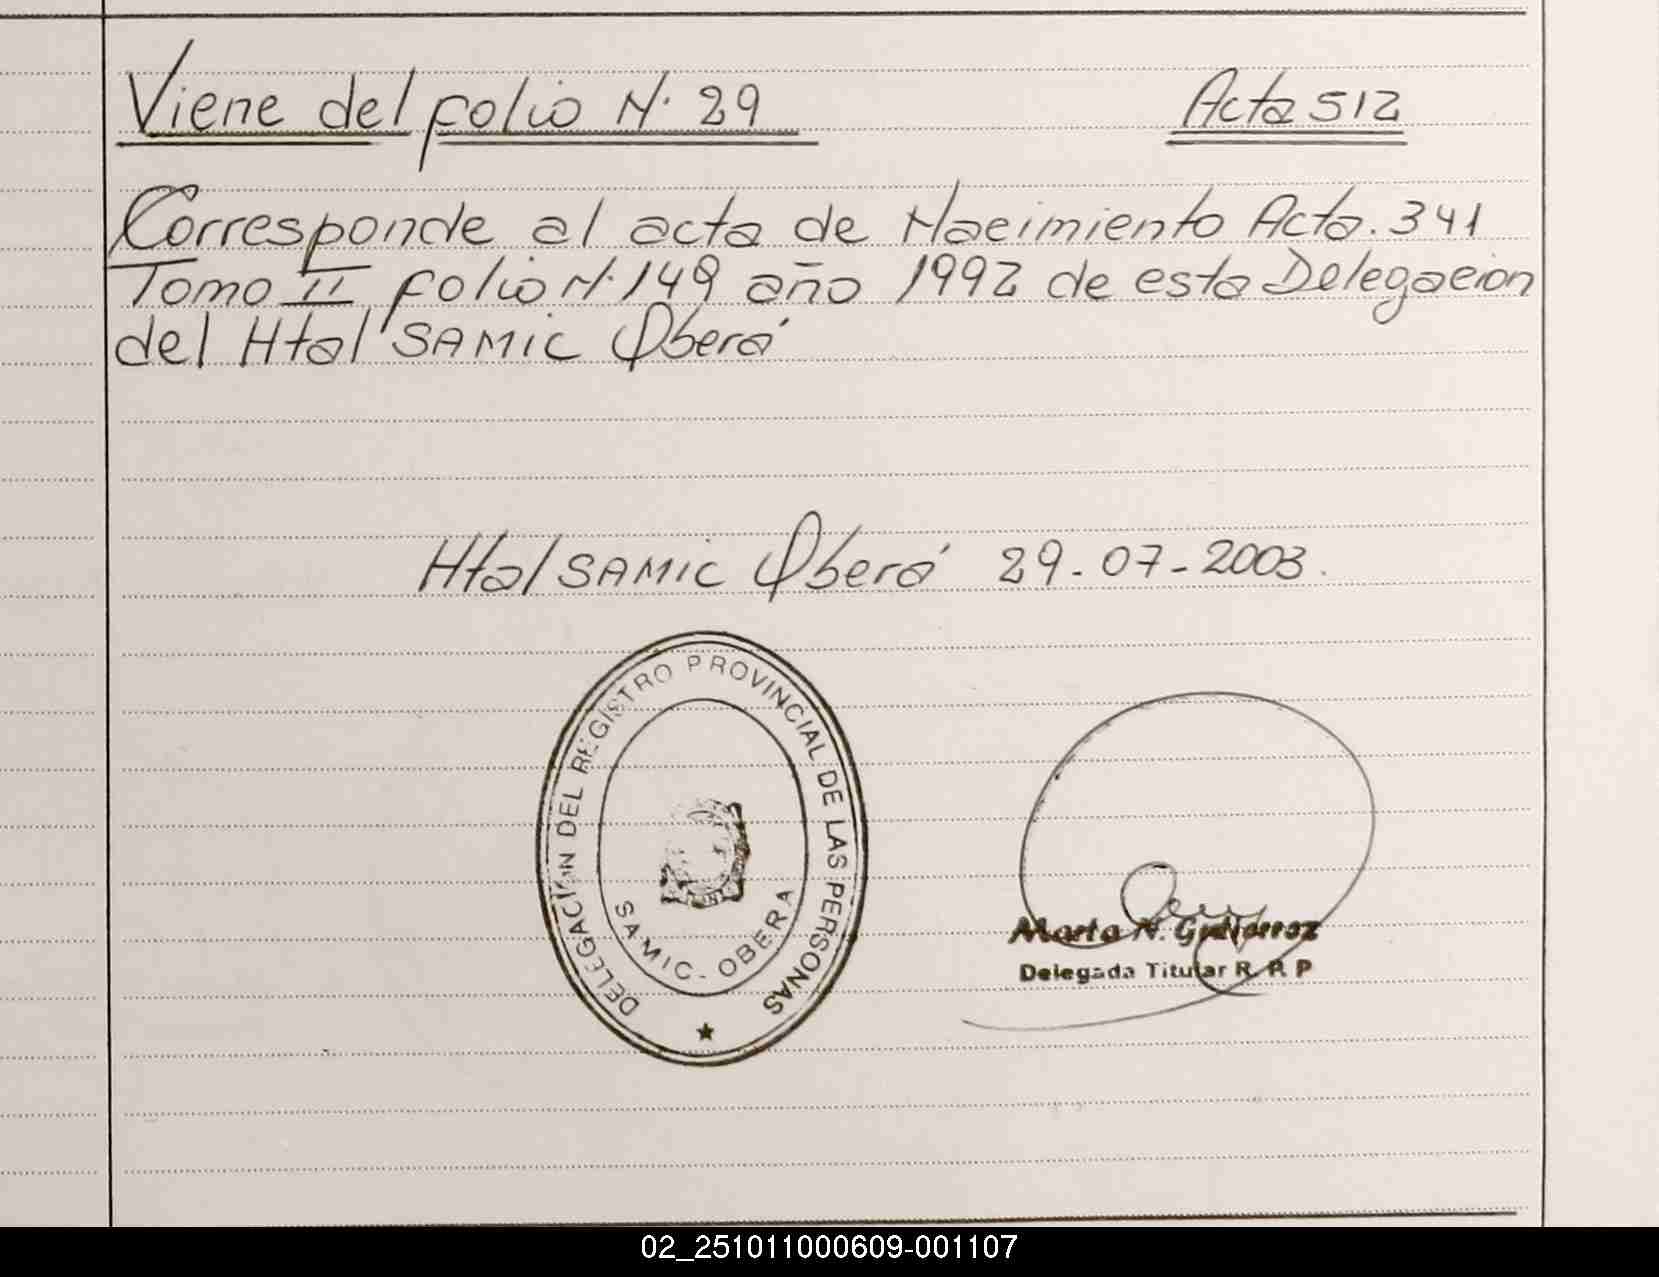 Viene del folio N. 29 Acta 512
Corresponde al acta de Nacimiento Acta. 341
Tomo II folio N. 149 año 1992 de esta Delegacion
del Htal SAMIC Oberá
Htal SAMIC Oberá 29-07-2003.
DELEGACION DEL REGISTRO PROVINCIAL DE LAS PERSONAS
SAMIC - OBERA
Marta N. Gutierrez
Delegada Titular R. P. P
02_251011000609-001107